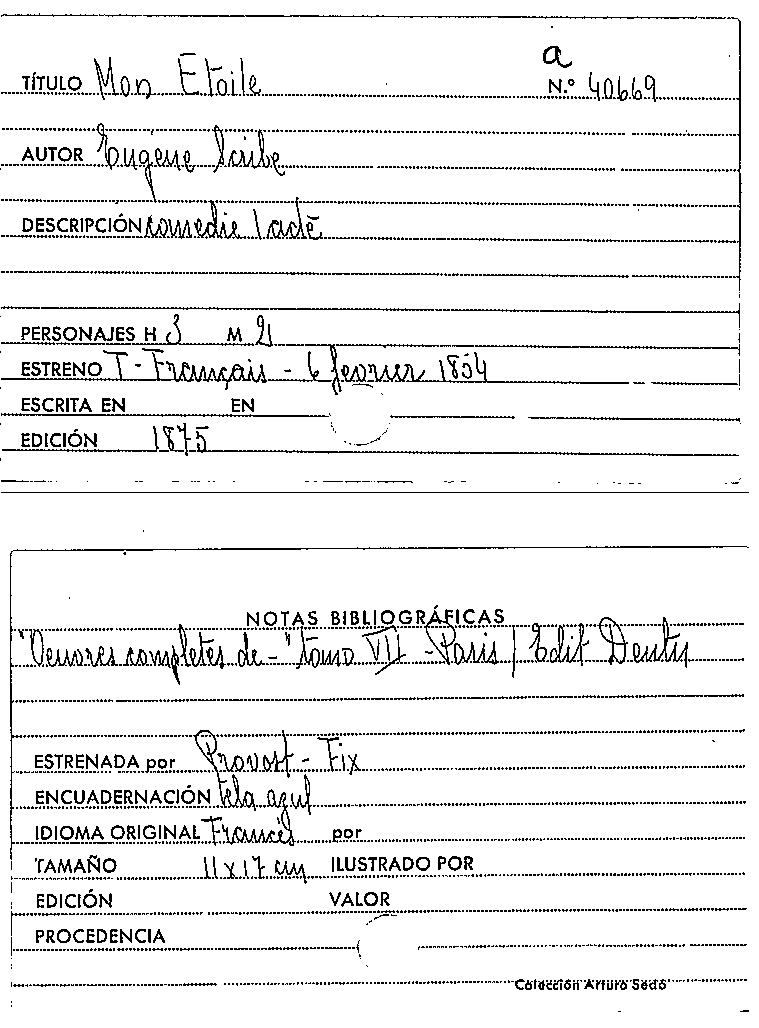 a
TÍTULO Mon Etoile N.º 40669
AUTOR Eugène Scribe
DESCRIPCIÓN comedie 1 acte
PERSONAJES H 3 M 2
ESTRENO T - Français - 6 fevrier 1854
ESCRITA EN EN
EDICIÓN 1875
NOTAS BIBLIOGRÁFICAS
"Oeuvres completes de -" tomo VII - Paris / Edit Dentu
ESTRENADA por Provost - Fix
ENCUADERNACIÓN tela azul
IDIOMA ORIGINAL Francés por
TAMAÑO 11 x 17 cm ILUSTRADO POR
EDICIÓN VALOR
PROCEDENCIA
Colección Arturo Sedó